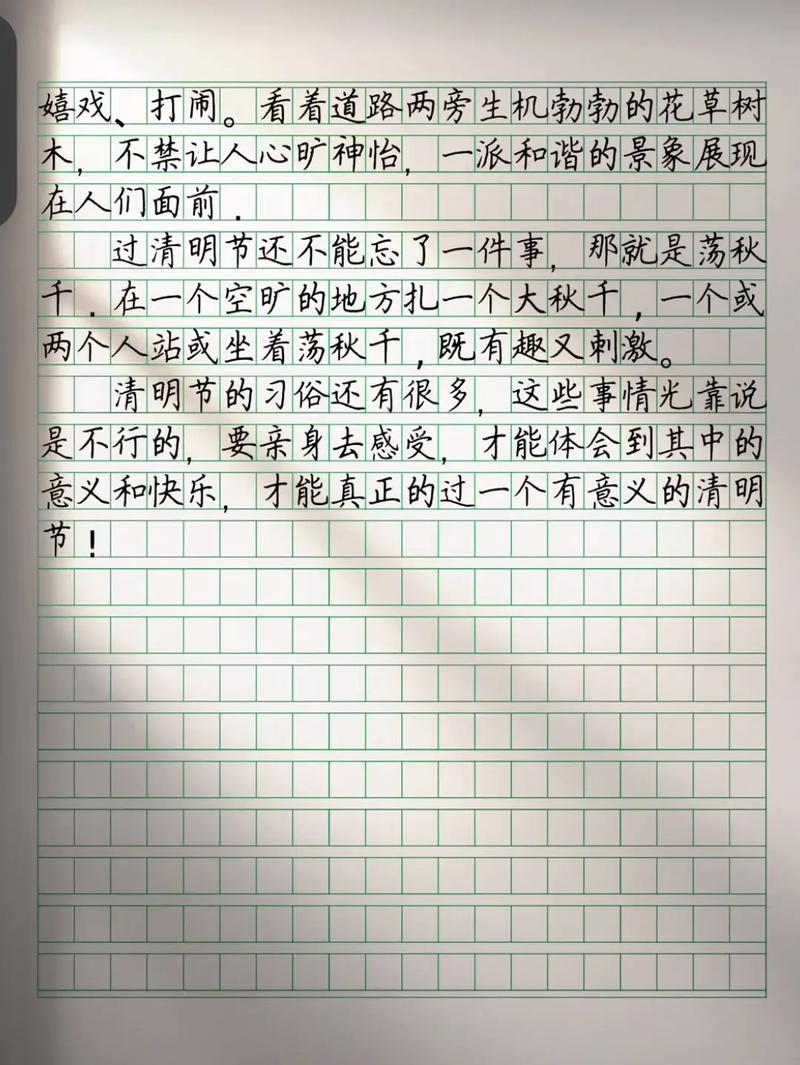 嬉戏、打闹。看着道路两旁生机勃勃的花草树
木，不禁让人心旷神怡，一派和谐的景象展现
在人们面前.
过清明节还不能忘了一件事，那就是荡秋
千.在一个空旷的地方扎一个大秋千,一个或
两个人站或坐着荡秋千,既有趣又刺激。
清明节的习俗还有很多，这些事情光靠说
是不行的，要亲身去感受，才能体会到其中的
意义和快乐，才能真正的过一个有意义的清明
节!